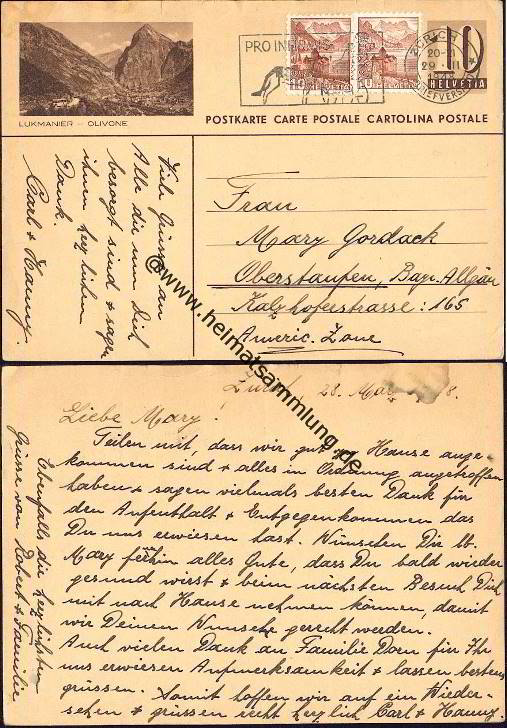 LUKMANIER – OLIVONE
PRO INFIRMIS
ZÜRICH
20-21
29. III
1948
BRIEFVERSAND
10
HELVETIA
10
HELVETIA
10
HELVETIA
POSTKARTE CARTE POSTALE CARTOLINA POSTALE
Viele Grüsse an
Alle die um Dich
besorgt sind + sagen
ihnen herzlichen
Dank.
Carl + Hanny
Frau
Mary Gordack
Oberstaufen, Bayr. Allgäu
Kalzhoferstrasse: 165
Americ. Zone
@www.heimatsammlung.de
Zürich, 28. März 8.
Liebe Mary!
Teilen mit, dass wir gut Hause ange-
kommen sind + alles in Ordnung angetroffen
haben + sagen vielmals besten Dank für
den Aufenthalt + Entgegenkommen das
Du uns erwiesen hast. Wünschen Dir lb.
Mary ferhin alles Gute, dass Du bald wieder
gesund wirst + beim nächsten Besuch Dich
mit nach Hause nehmen können, damit
wir Deinem Wunsche gerecht werden.
Auch vielen Dank an Familie Dorn für Ihr
uns erwiesen Aufmerksamkeit + lassen bestens
grüssen. Somit hoffen wir auf ein Wieder-
sehen + grüssen recht herzlich Carl + Hanny
Ebenfalls die herzlichsten
Grüsse von Robert + Familie